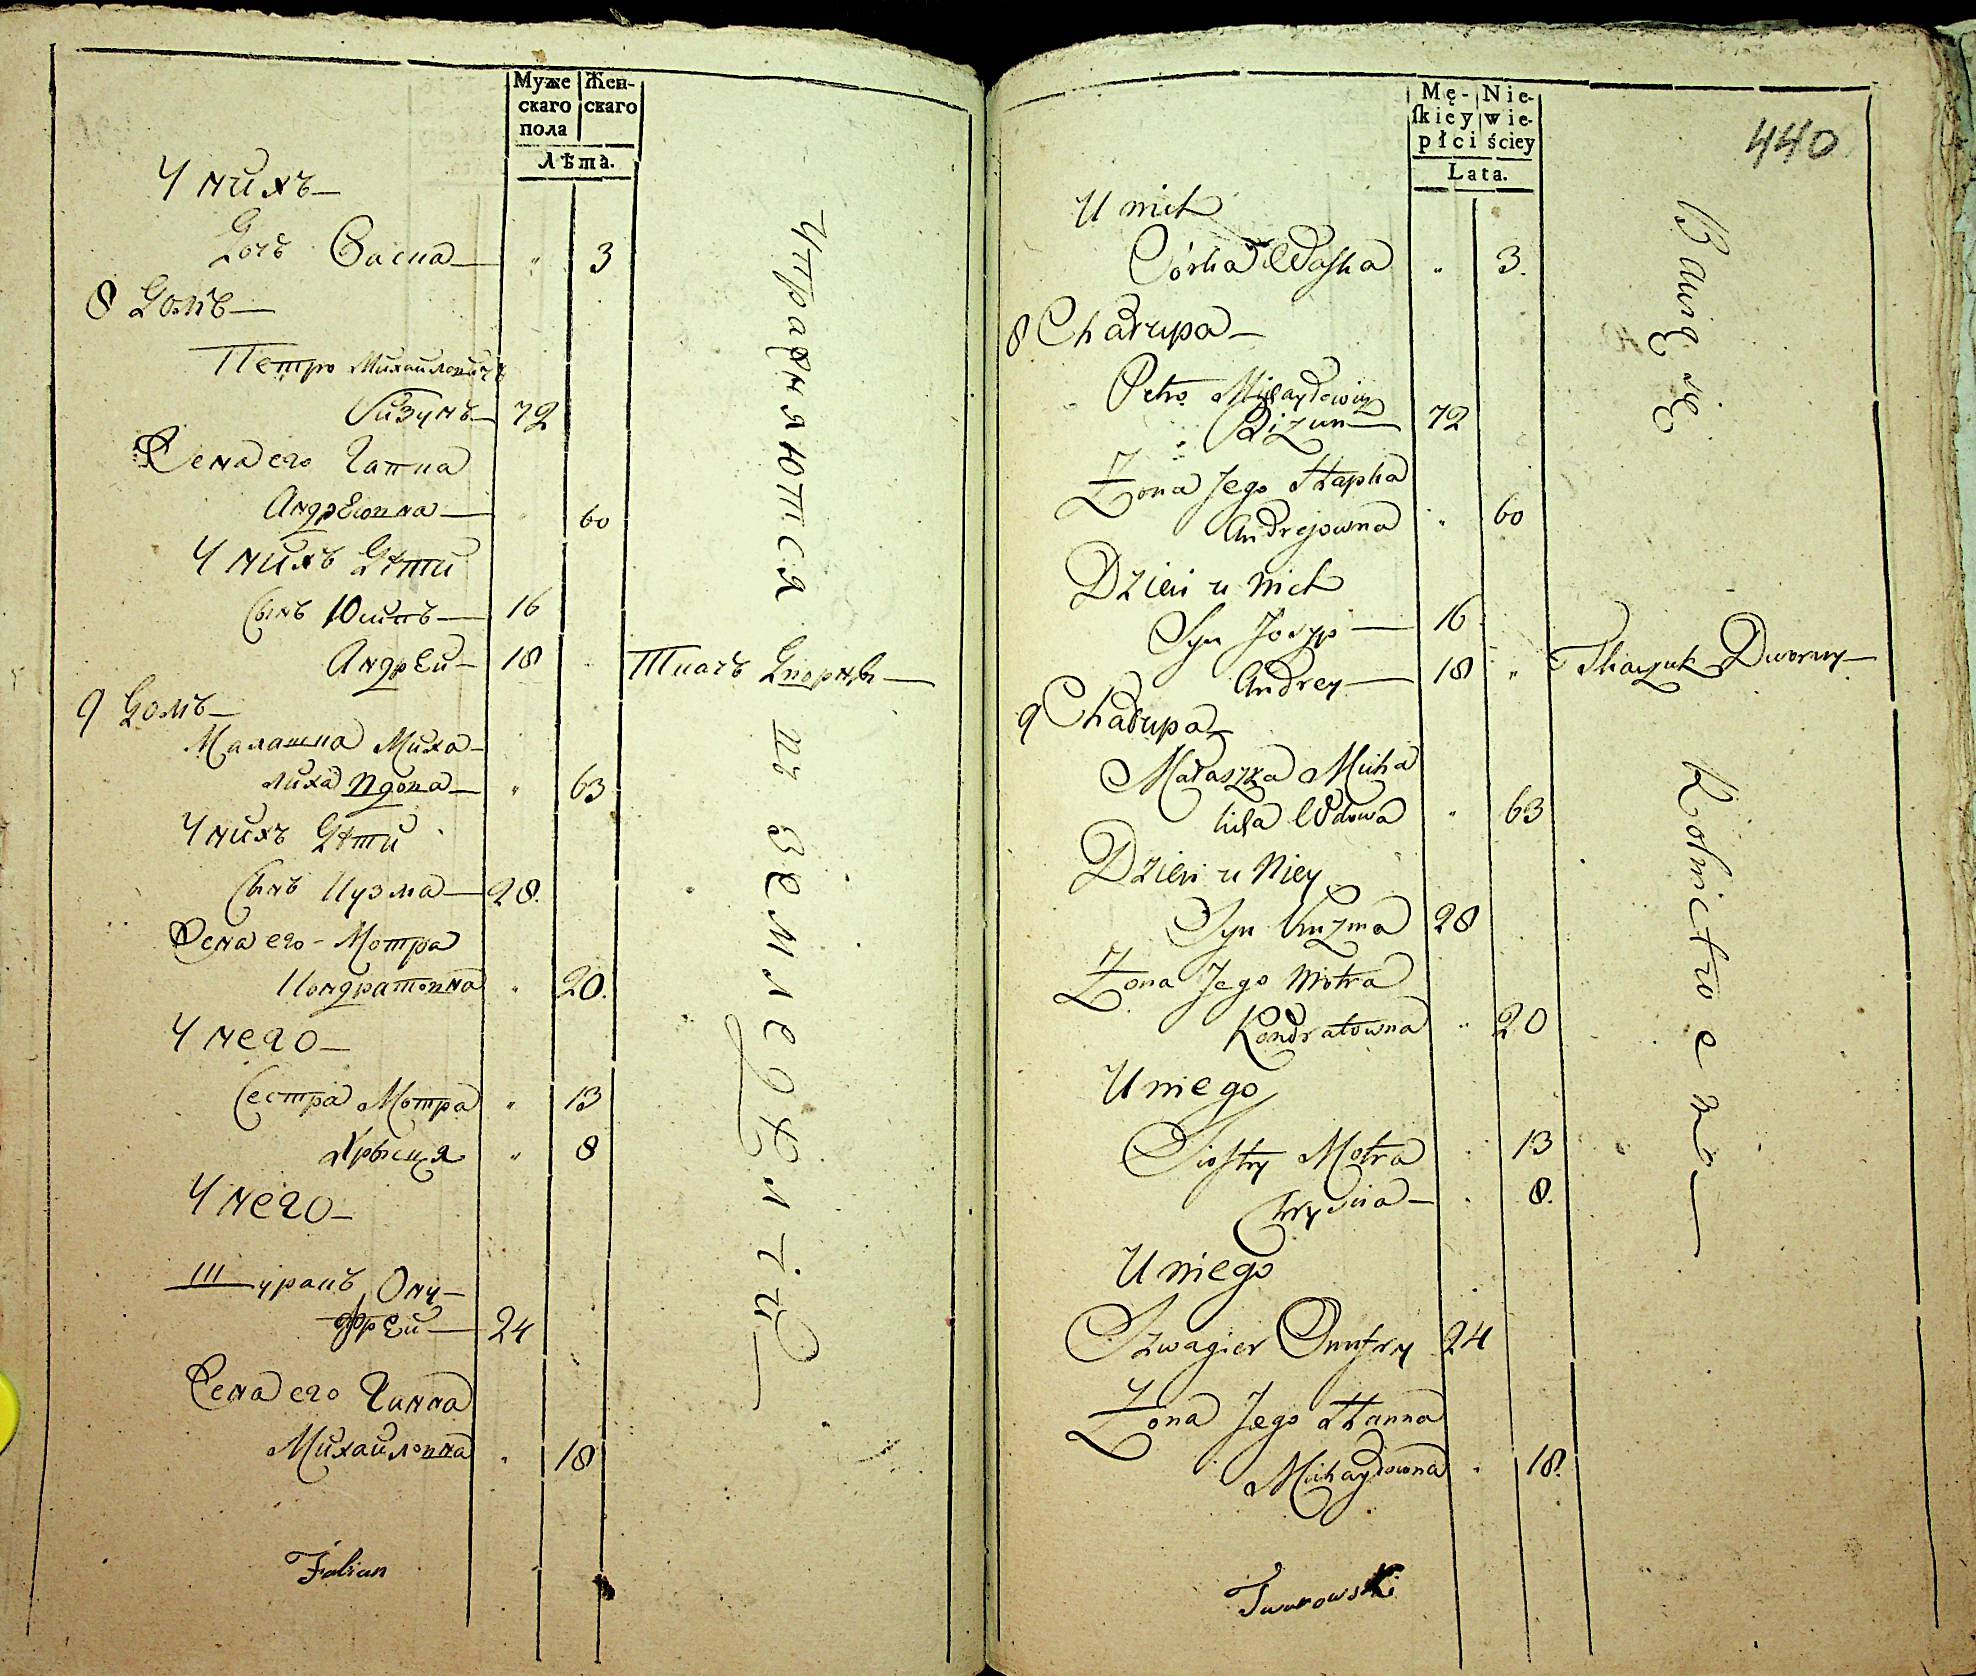 Муже Жен-
скаго скаго
пола
Лѣта.
У нихъ
Дочь Васка " 3
8 Домъ
Петро Михайловичъ
Бизунъ 72
Жена его Гапка
Андрѣовна 60
У нихъ Дѣти
Сынъ Юсипъ 16
Андрѣй 18 Ткачъ Дворный
9 Домъ
Малашка Миха-
лиха вдова " 63
У нихъ Дѣти
Сынъ Кузма 28.
Жена его Мотра
Кондратовна " 20.
У него
Сестра Мотра " 13
Хрыстя " 8
У него
Шуринъ Ону-
фрѣй 24
Жена его Ганна
Михайловна " 18
Упражняются въ Земледѣлїи
Fabian
440
Mę- Nie-
skiey wie-
płci ściey
Lata.
U nich
Córka Waska " 3.
8 Chałupa
Petro Michayłowicz
Bizun 72
Żona Jego Hapka
Andrejowna " 60
Dzieci u nich
Syn Josyp 16
Andrey 18 " Tkaczyk Dworny
9 Chałupa
Małaszka Micha
licha Wdowa " 63
Dzieci u Niey
Syn Kuzma 28
Żona Jego Motra
Kondratowna " 20
U niego
Siostry Motra " 13
Chrysia " 8.
U niego
Szwagier Onufry 24
Żona Jego Hanna
Michayłowna " 18.
Bawią się Rolnictwem
Tworowski